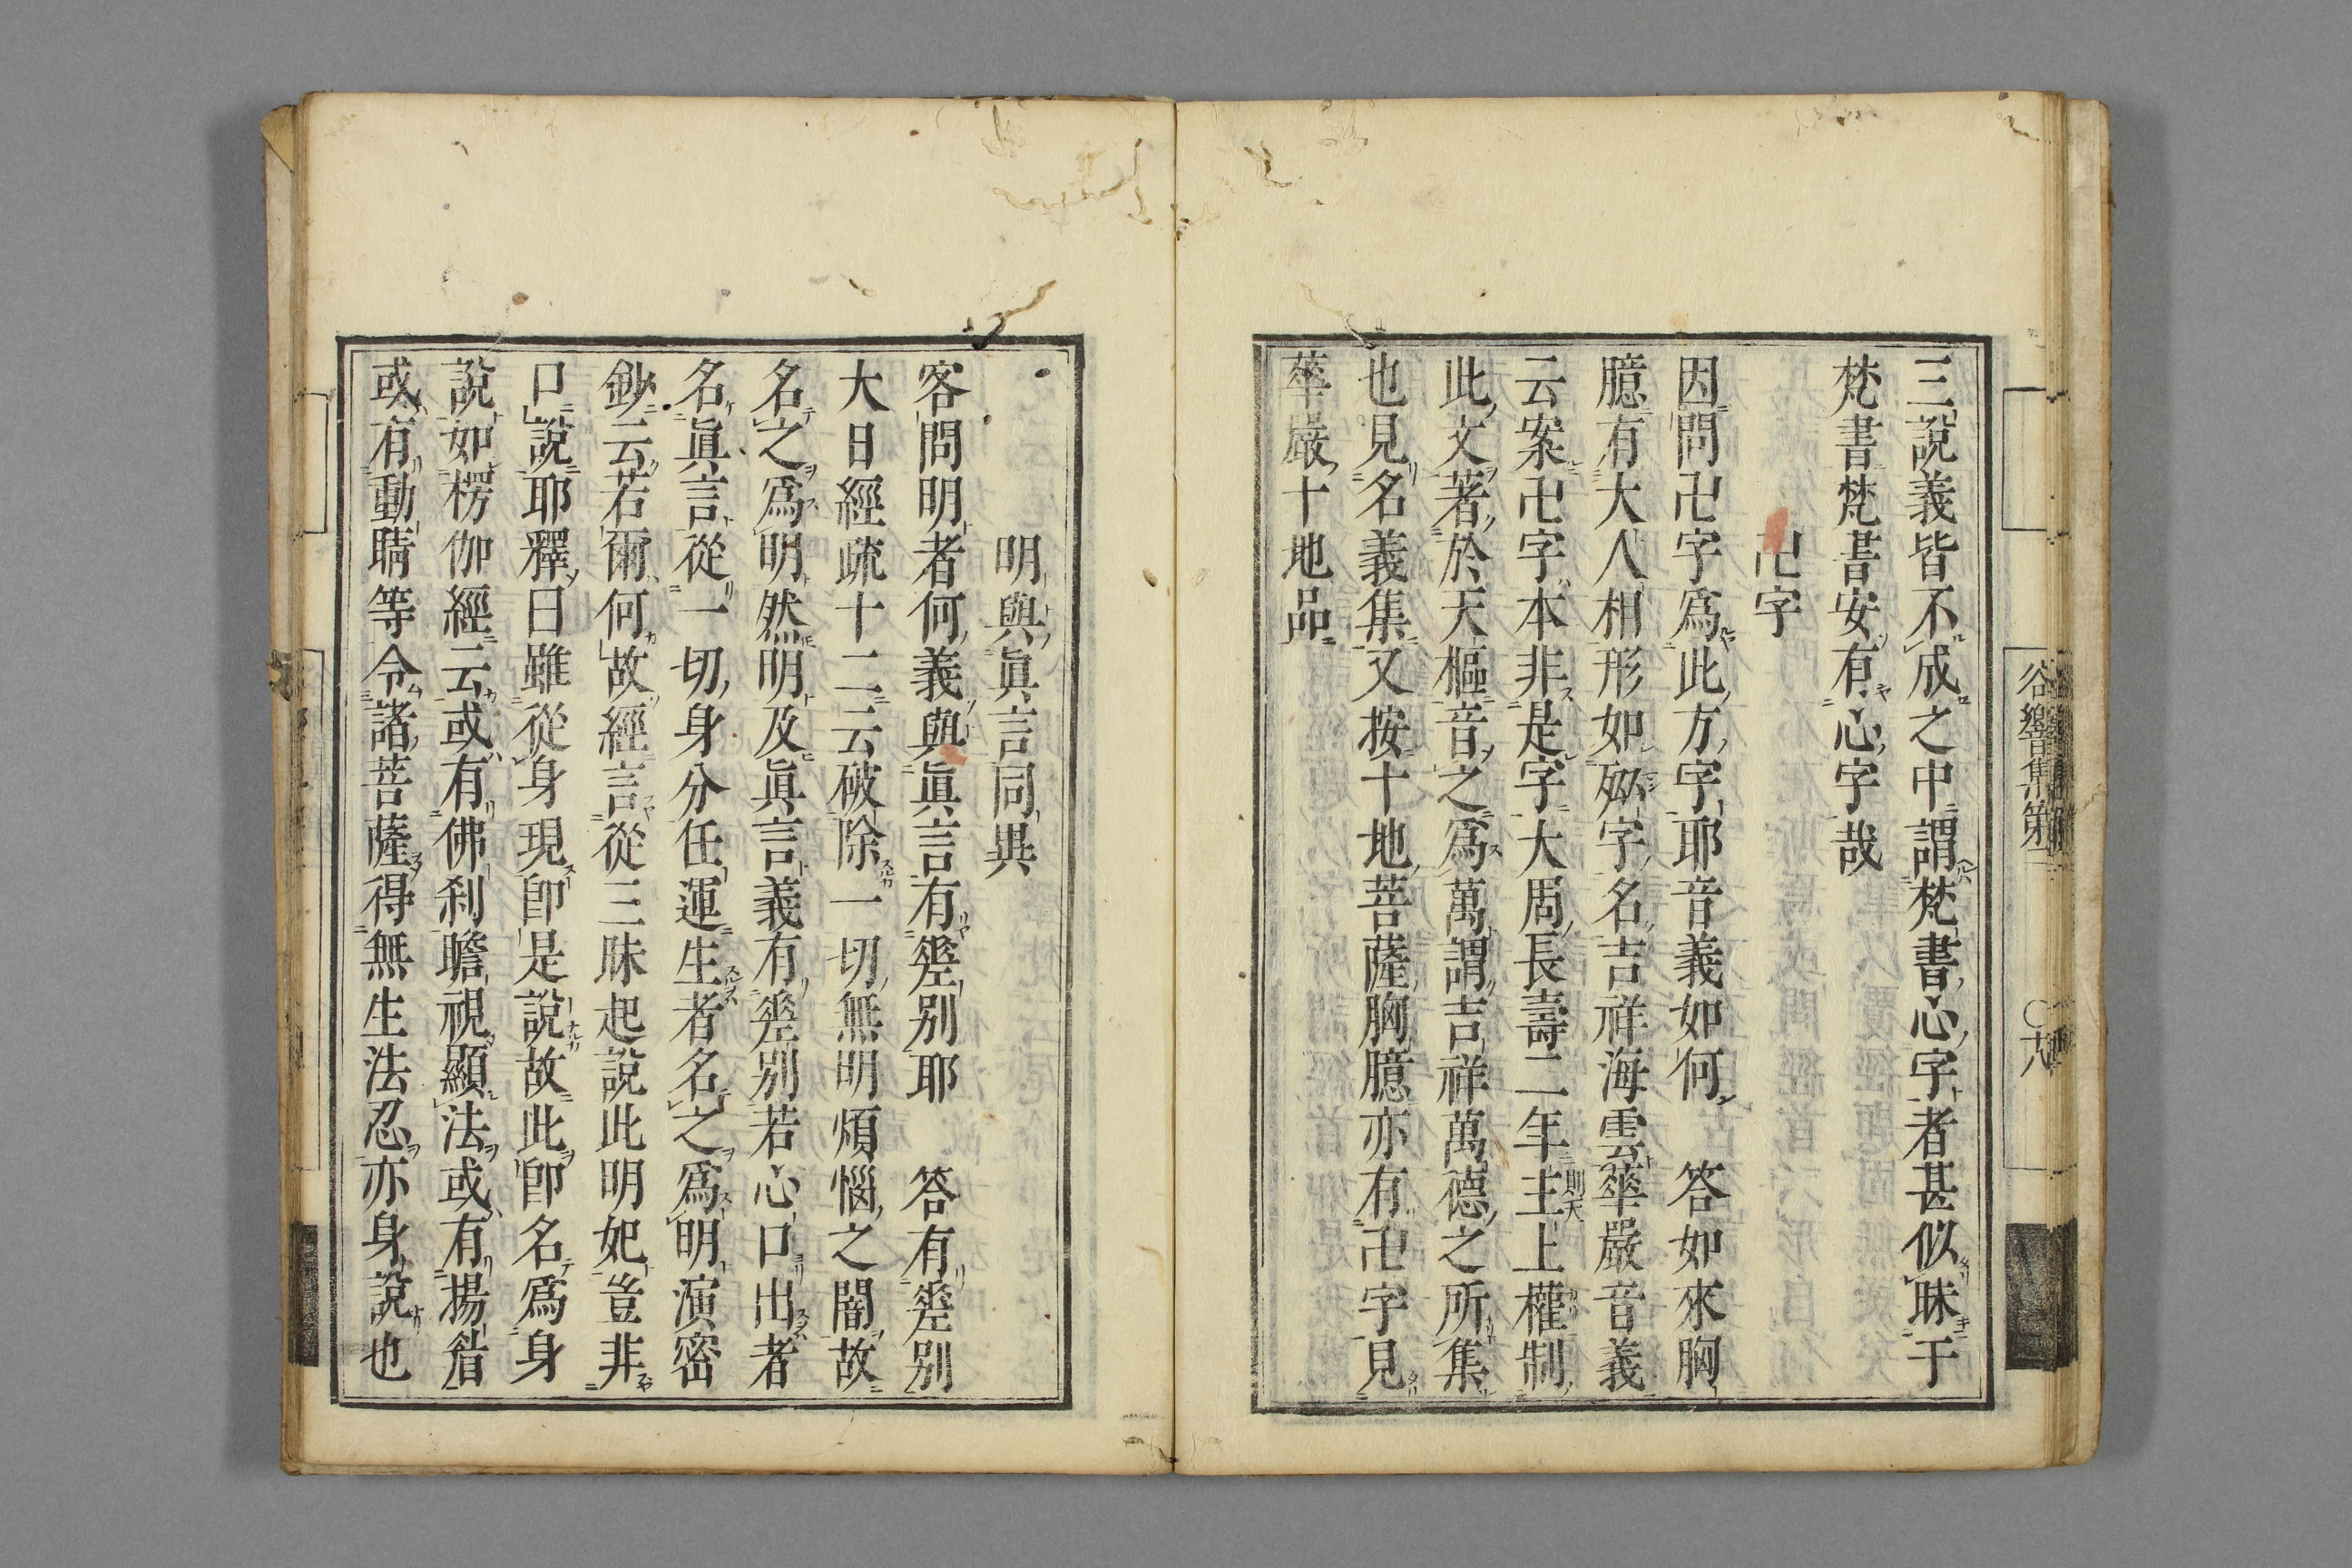 三說義皆不成之中謂梵書心字者甚似昧于
梵書梵書安有心字哉
卍字
因問卍字爲此方字耶音義如何 答如來胸
臆有大人相形如𠃵字名吉祥海雲華嚴音義
云案卍字本非是字大周長壽二年主上權制
則天
此文著於天樞音之爲萬謂吉祥萬德之所集
也見名義集又按十地菩薩胸臆亦有卍字見
華嚴十地品
谷響集第二 ○十八
明與眞言同異
客問明者何義與眞言有差別耶 答有差別
大日經疏十二云破除一切無明煩惱之闇故
名之爲明然明及眞言義有差別若心口出者
名眞言從一切身分任運生者名之爲明演密
鈔云若爾何故經言從三昧起說此明妃豈非
口說耶釋曰雖從身現即是說故此即名爲身
說如楞伽經云或有佛剎瞻視顯法或有揚眉
或有動睛等令諸菩薩得無生法忍亦身說也